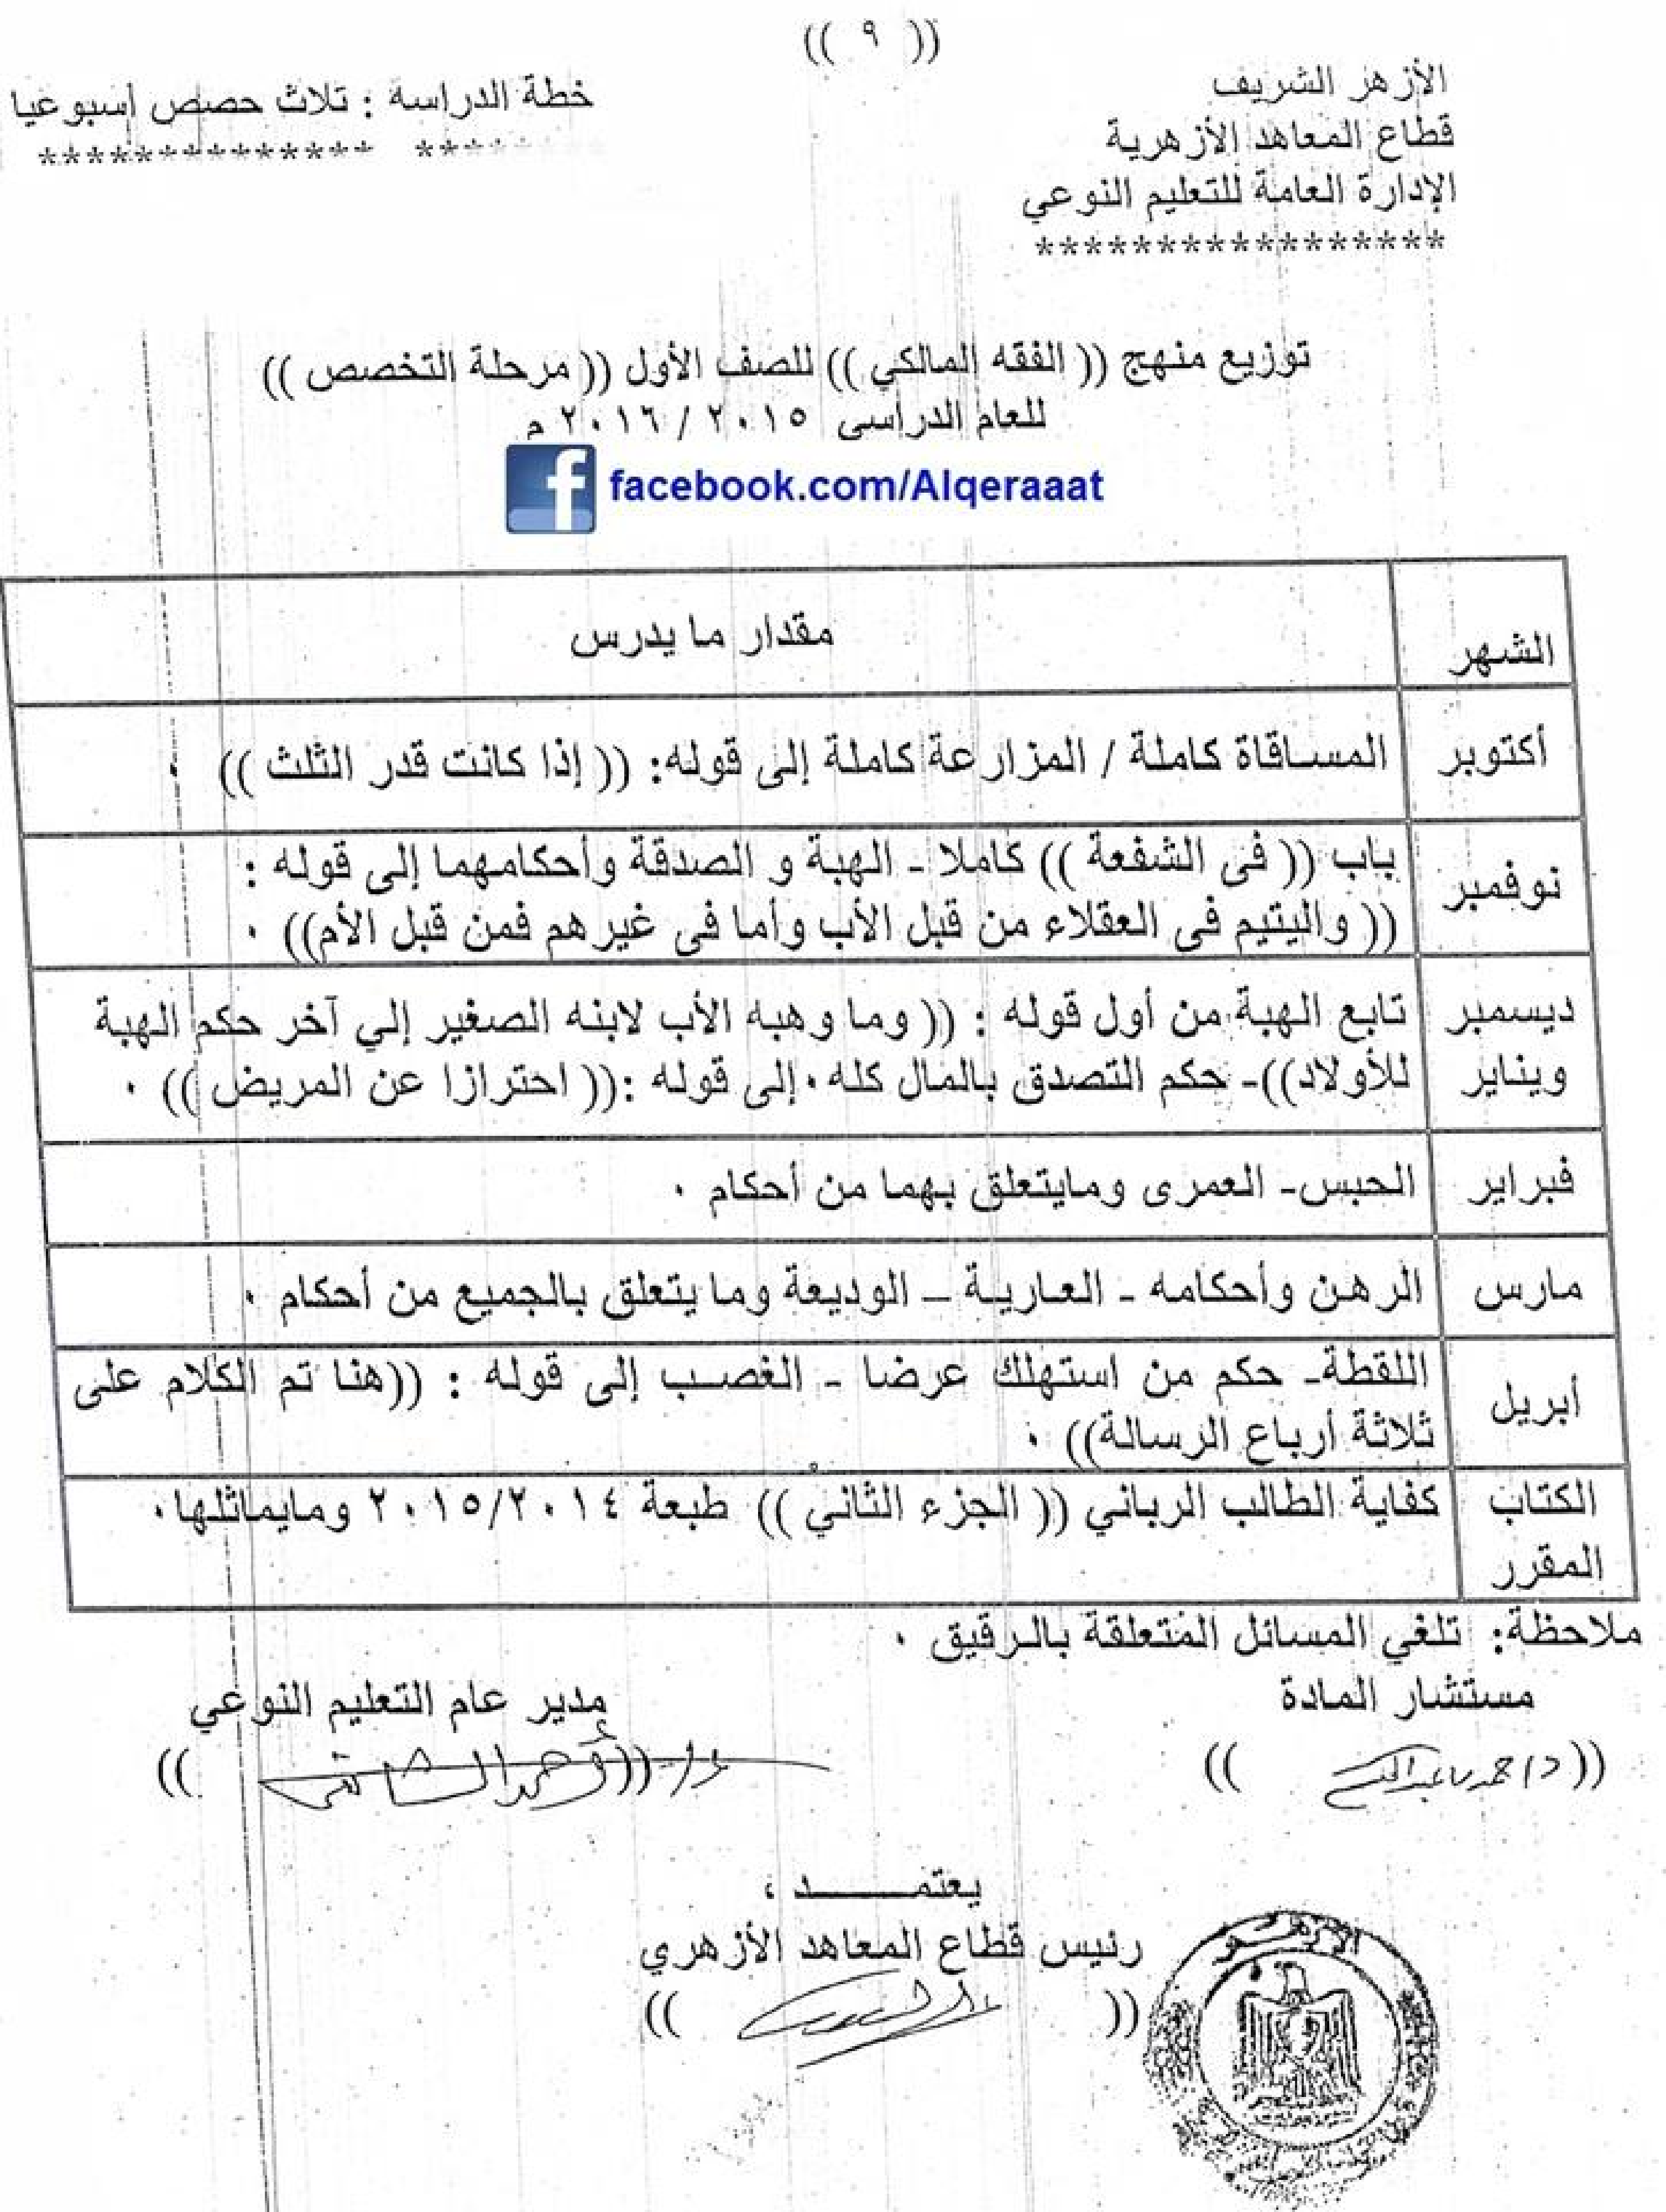 (( ٩ ))
الأزهر الشريف
قطاع المعاهد الأزهرية
الإدارة العامة للتعليم النوعي
*****************
خطة الدراسة : ثلاث حصص إسبوعيا
************** ********
توزيع منهج (( الفقه المالكي )) للصف الأول (( مرحلة التخصص ))
للعام الدراسى ٢٠١٥ / ٢٠١٦ م
facebook.com/Alqeraaat
الشهر مقدار ما يدرس
أكتوبر المساقاة كاملة / المزارعة كاملة إلى قوله: (( إذا كانت قدر الثلث ))
نوفمبر باب (( فى الشفعة )) كاملا - الهبة و الصدقة وأحكامهما إلى قوله :
(( واليتيم فى العقلاء من قبل الأب وأما فى غيرهم فمن قبل الأم)) .
ديسمبر تابع الهبة من أول قوله : (( وما وهبه الأب لابنه الصغير إلي آخر حكم الهبة
ويناير للأولاد))- حكم التصدق بالمال كله . إلى قوله :(( احترازا عن المريض )) .
فبراير الحبس- العمرى ومايتعلق بهما من أحكام .
مارس الرهن وأحكامه - العارية – الوديعة وما يتعلق بالجميع من أحكام .
أبريل اللقطة- حكم من استهلك عرضا - الغصب إلى قوله : ((هنا تم الكلام على
ثلاثة أرباع الرسالة)) .
الكتاب كفاية الطالب الرباني (( الجزء الثاني )) طبعة ٢٠١٥/٢٠١٤ ومايماثلها .
المقرر
ملاحظة: تلغي المسائل المتعلقة بالرقيق .
مستشار المادة
مدير عام التعليم النوعي
يعتمـــــد ،
رئيس قطاع المعاهد الأزهري
الأزهر